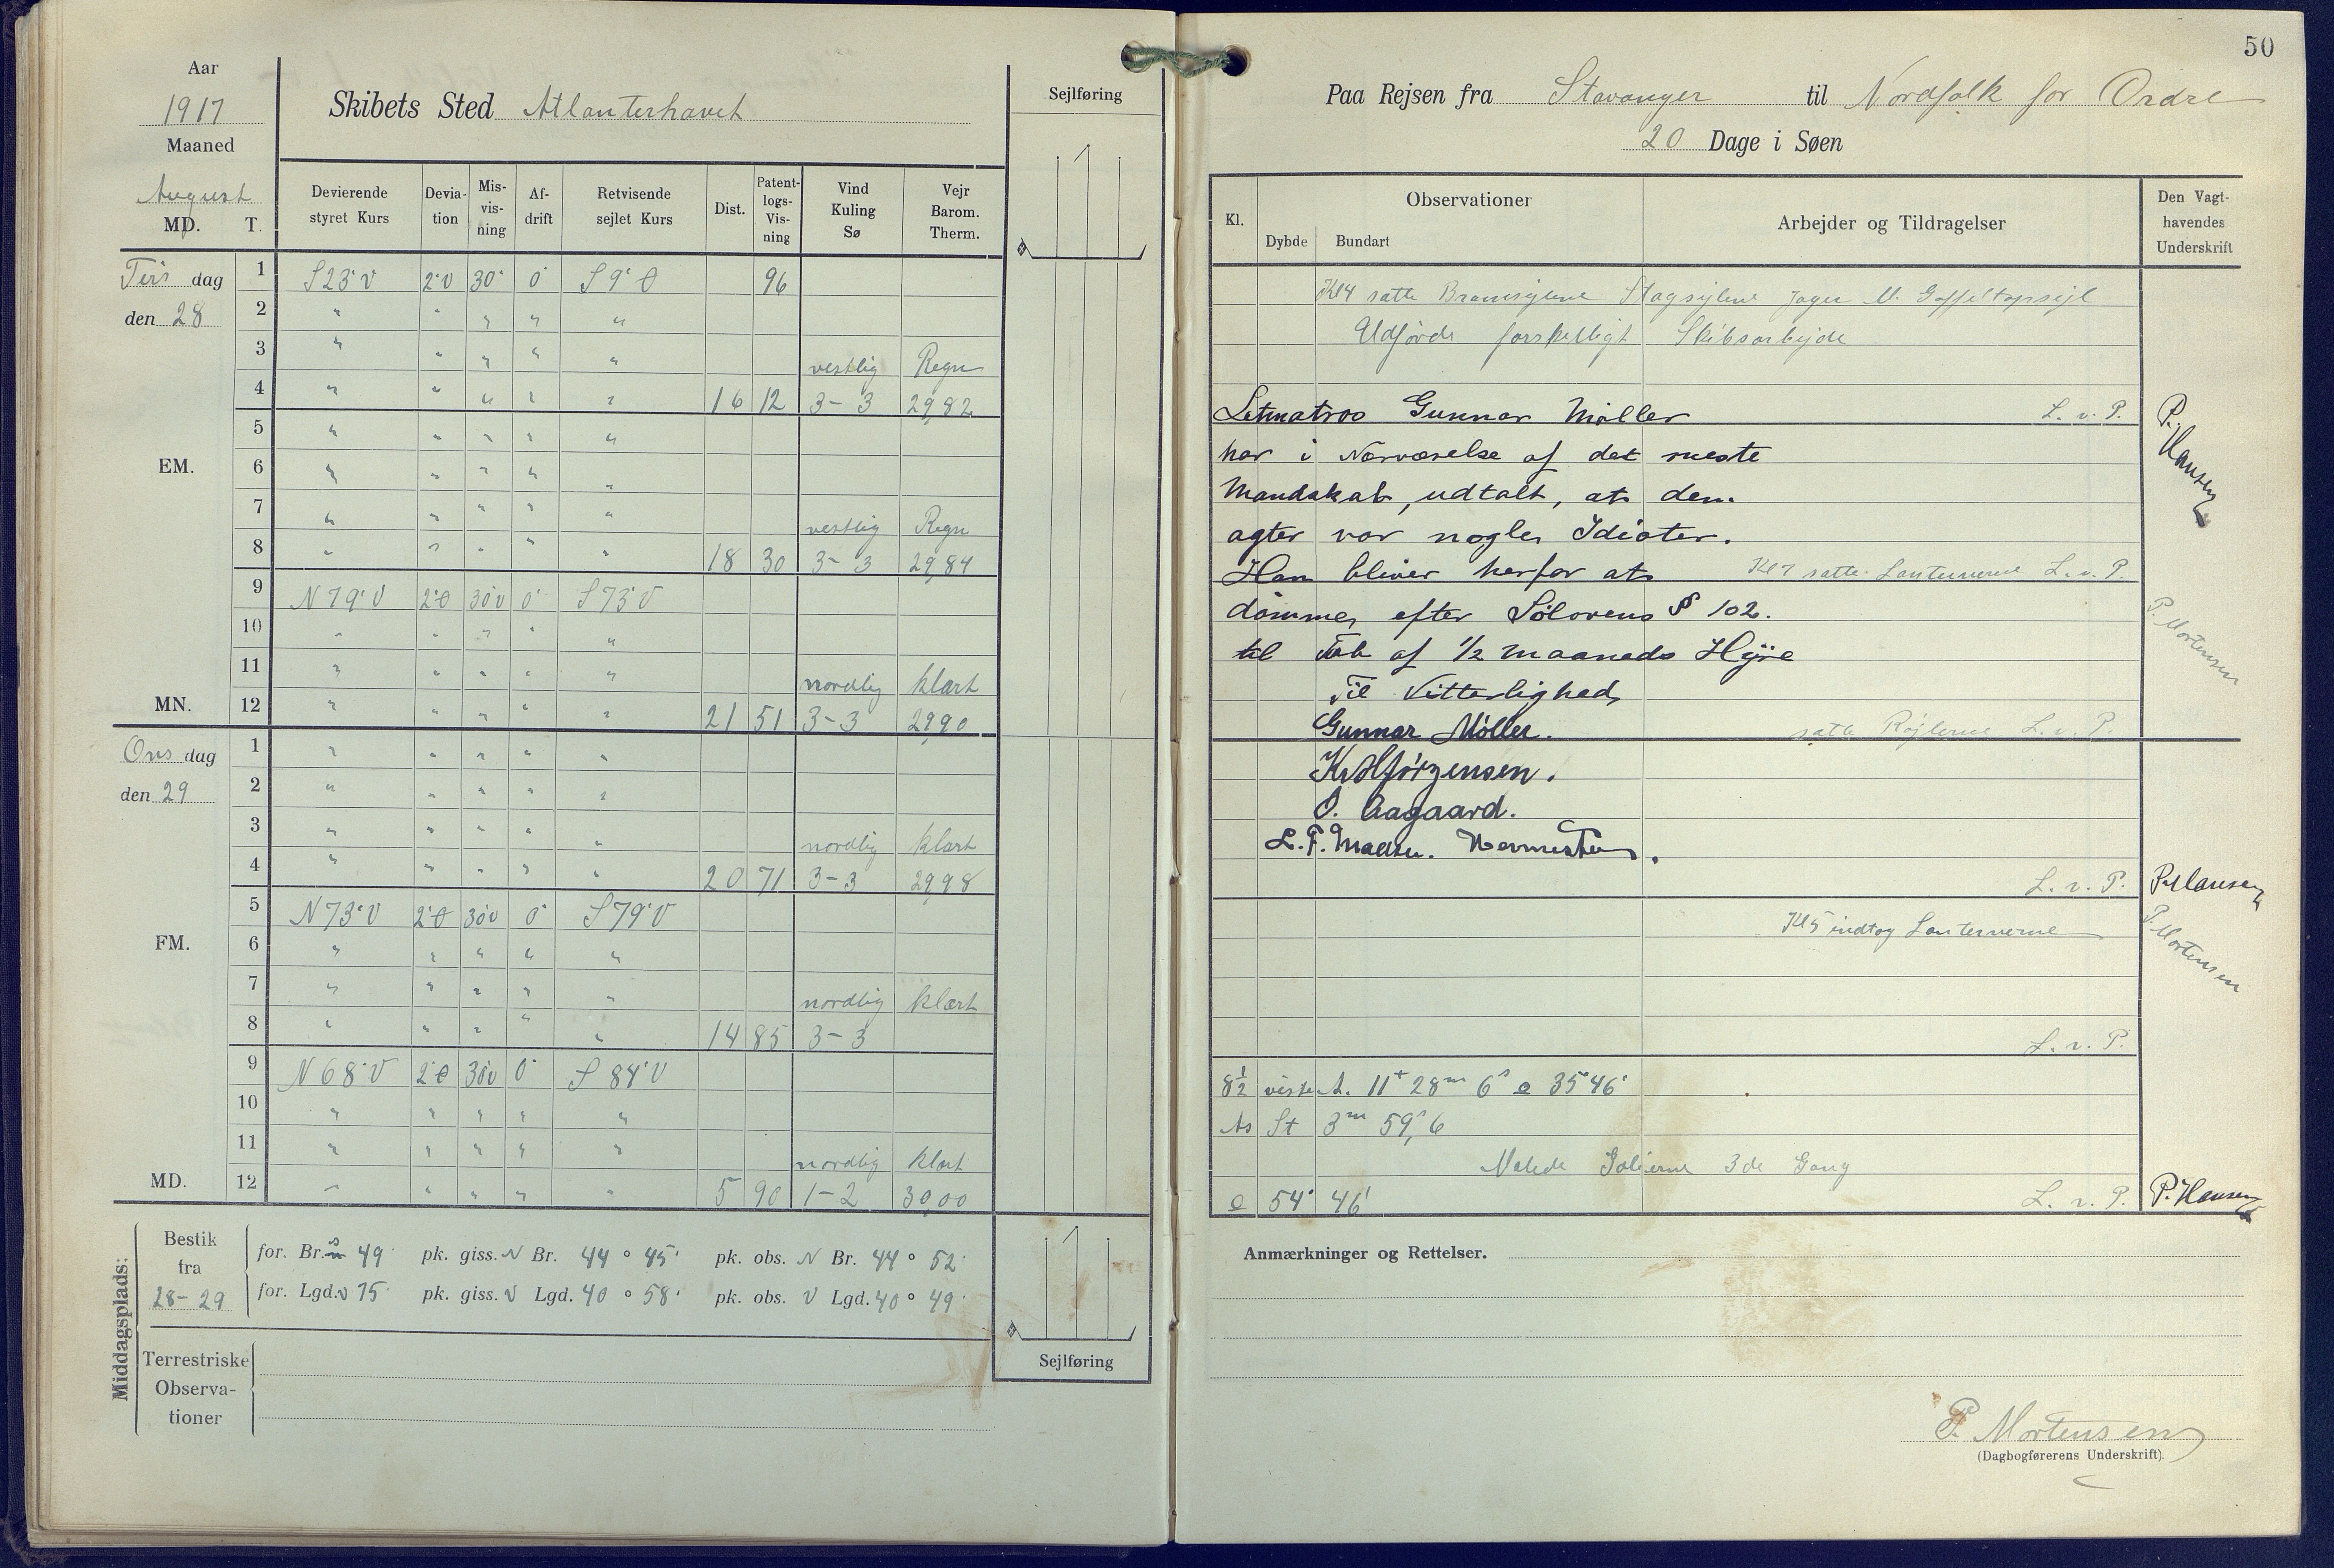 Aar
1917
Maaned
August
MD. T.
Skibets Sted Atlanterhavet
Sejlføring
Devierende styret Kurs
Deviation
Misvisning
Afdrift
Retvisende sejlet Kurs
Dist.
Patentlogs-Visning
Vind Kuling Sø
Vejr Barom. Therm.
Tirs dag
den 28
1 S23°V 2°V 30° 0° S9°Ø 96
2 " " " " "
3 " " " " " vestlig Regn
4 " " " " " 16 12 3-3 29,82
5 " " " " "
EM.
6 " " " " "
7 " " " " " vestlig Regn
8 " " " " " 18 30 3-3 29,84
9 N79°V 2°Ø 30°V 0° S73°V
10 " " " " "
11 " " " " " nordlig klart
MN. 12 " " " " " 21 51 3-3 29,90
Ons dag
den 29
1 " " " " "
2 " " " " "
3 " " " " " nordlig klart
4 " " " " " 20 71 3-3 29,98
5 N73°V 2°Ø 30°V 0° S79°V
FM.
6 " " " " "
7 " " " " " nordlig klart
8 " " " " " 14 85 3-3
9 N68°V 2°Ø 30°V 0° S84°V
10 " " " " "
11 " " " " " nordlig klart
MD. 12 " " " " " 5 90 1-2 30,00
Middagsplads:
Bestik fra 28-29
for. Br. s 49' pk. giss. N Br. 44° 45' pk. obs. N Br. 44° 52'
for. Lgd. v 75' pk. giss. V Lgd. 40° 58' pk. obs. V Lgd. 40° 49'
Terrestriske Observationer
Sejlføring
50
Paa Rejsen fra Stavanger til Nordfolk for Ordre
20 Dage i Søen
Kl.
Observationer
Dybde Bundart
Arbejder og Tildragelser
Den Vagthavendes Underskrift
Kl 4 satte Bramsejlene Stagsejlene Jager M. Gaffeltopsejl
Udførde forskelligt Skibsarbejde
Letmatros Gunnar Møller L. v. P. P. Hansen
har i Nærværelse af det meste
Mandskab, udtalt, at dem
agter var nogle Idioter.
Han bliver herfor at Kl 7 satte Lanternerne L. v. P.
dømme efter Sølovens § 102. P. Mortensen
til Tab af 1/2 Maaneds Hyre
Til Vitterlighed
Gunnar Møller. satte Røjlerne L. v. P.
Kr Hjørgensen.
O. Aagaard.
L. F. Madsen.
L. v. P. P. Hansen
Kl 5 indtog Lanternerne P. Mortensen
L. v. P.
8 1/2 viste A. 11 t 28 m 6 s 35° 46'
As St 3 m 59,s 6
Malede 3de Gang
54° 46' L. v. P. P. Hansen
Anmærkninger og Rettelser.
P. Mortensen
(Dagbogførerens Underskrift).